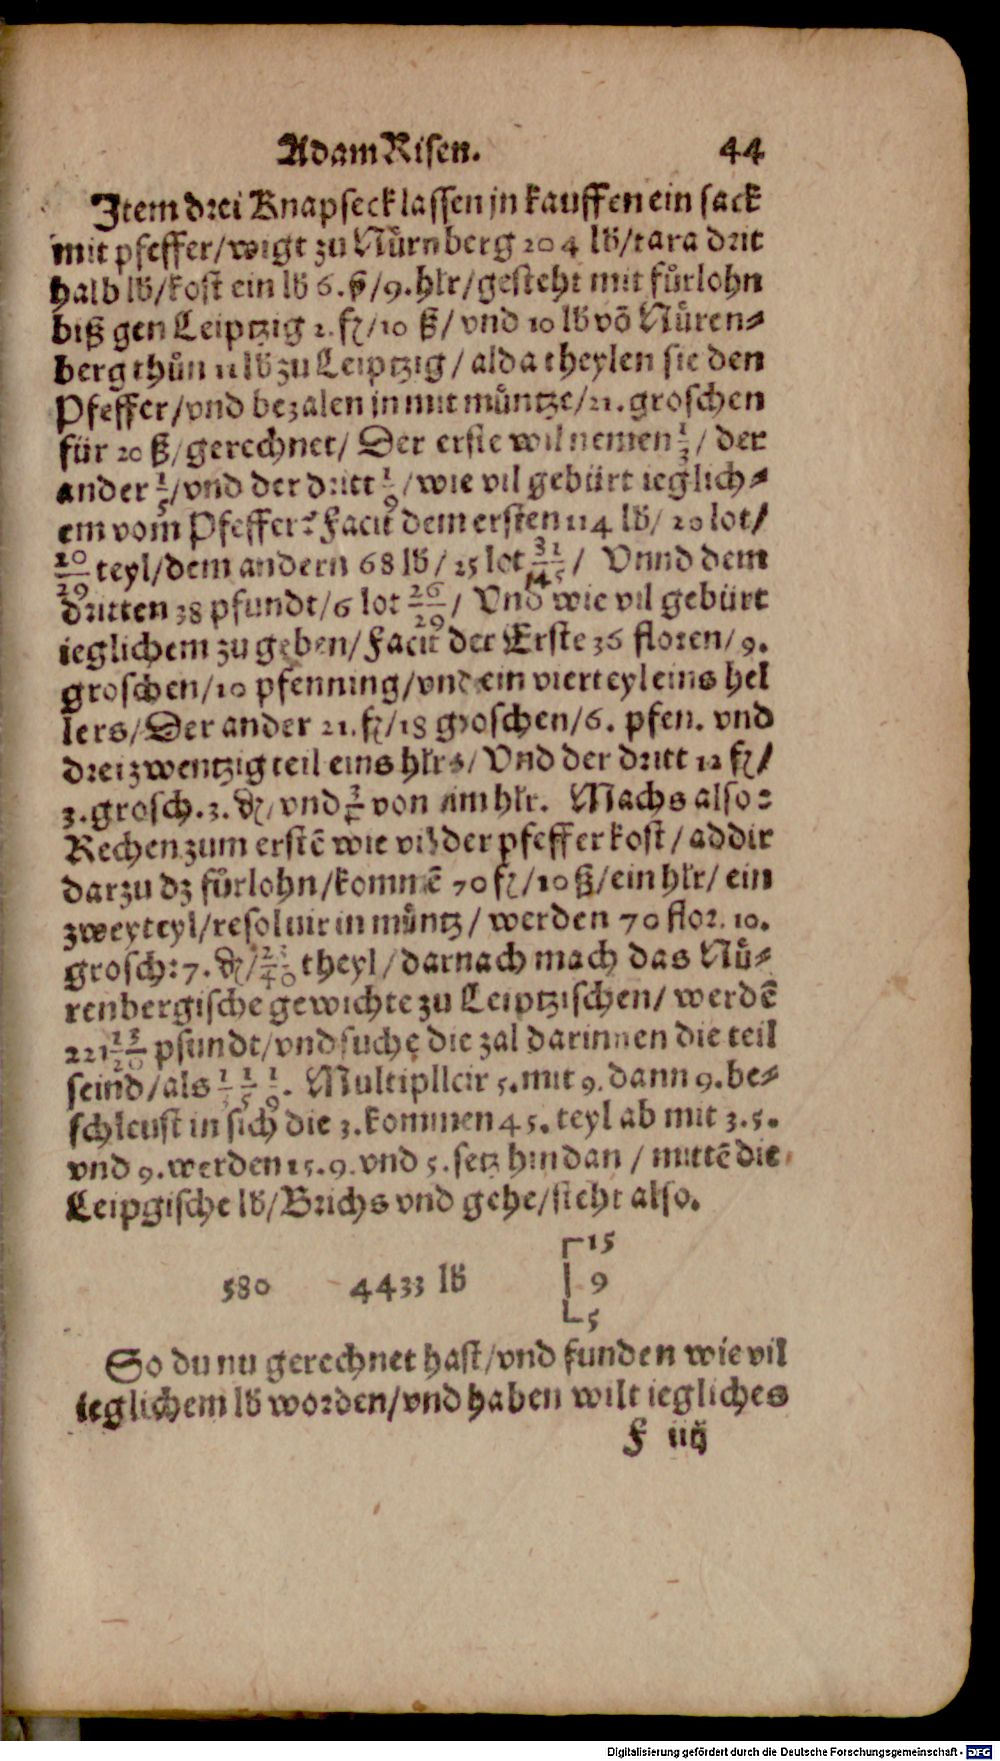 Adam Risen. 44
Item drei Knapseck lassen jn kauffen ein sack
mit pfeffer/wigt zu Nuͤrnberg 204 lb/tara drit
halb lb/kost ein lb 6.ß/9.hlr/gesteht mit fuͤrlohn
biß gen Leiptzig 2.fl/10 ß/vnd 10 lb võ Nuͤren⸗
berg thuͤn 11 lb zu Leiptzig/alda theylen sie den
Pfeffer/vnd bezalen jn mit muͤntze/21.groschen
für 20 ß/gerechnet/Der erste wil nemen 1/3/der
ander 1/5/vnd der dritt 1/9/wie vil gebürt ieglich⸗
em vom Pfeffer? Facit dem ersten 114 lb/20 lot/
20/29 teyl/dem andern 68 lb/25 lot 31/145/ Vnnd dem
dritten 38 pfundt/6 lot 26/29/ Vnd wie vil gebürt
ieglichem zu geben/Facit der Erste 36 floren/9.
groschen/10 pfenning/vnd ein vierteyl eins hel
lers/Der ander 21.fl/18 groschen/6. pfen. vnd
drei zwentzig teil eins hlrs/Vnd der dritt 12 fl/
3.grosch.3.₰/vnd von eim hlr. Machs also:
Rechen zum erstẽ wie vil der pfeffer kost/addir
darzu dz fuͤrlohn/kommẽ 70 fl/10 ß/ein hlr/ein
zweyteyl/resoluir in muͤntz/werden 70 flor. 10.
grosch:7.₰/21/40 theyl/darnach mach das Nuͤ⸗
renbergische gewichte zu Leiptzischen/werdẽ
221 13/20 pfundt/vnd suche die zal darinnen die teil
seind/als 1/3 1/5 1/9. Multiplicir 5.mit 9.dann 9.be⸗
schleust in sich die 3.kommen 45.teyl ab mit 3.5.
vnd 9.werden 15.9.vnd 5.setz hindan/mittẽ die
Leipgische lb/Brichs vnd gehe/steht also.
15
580 4433 lb 9
5
So du nu gerechnet hast/vnd funden wie vil
ieglichem lb worden/vnd haben wilt iegliches
F iiij
Digitalisierung gefördert durch die Deutsche Forschungsgemeinschaft - DFG